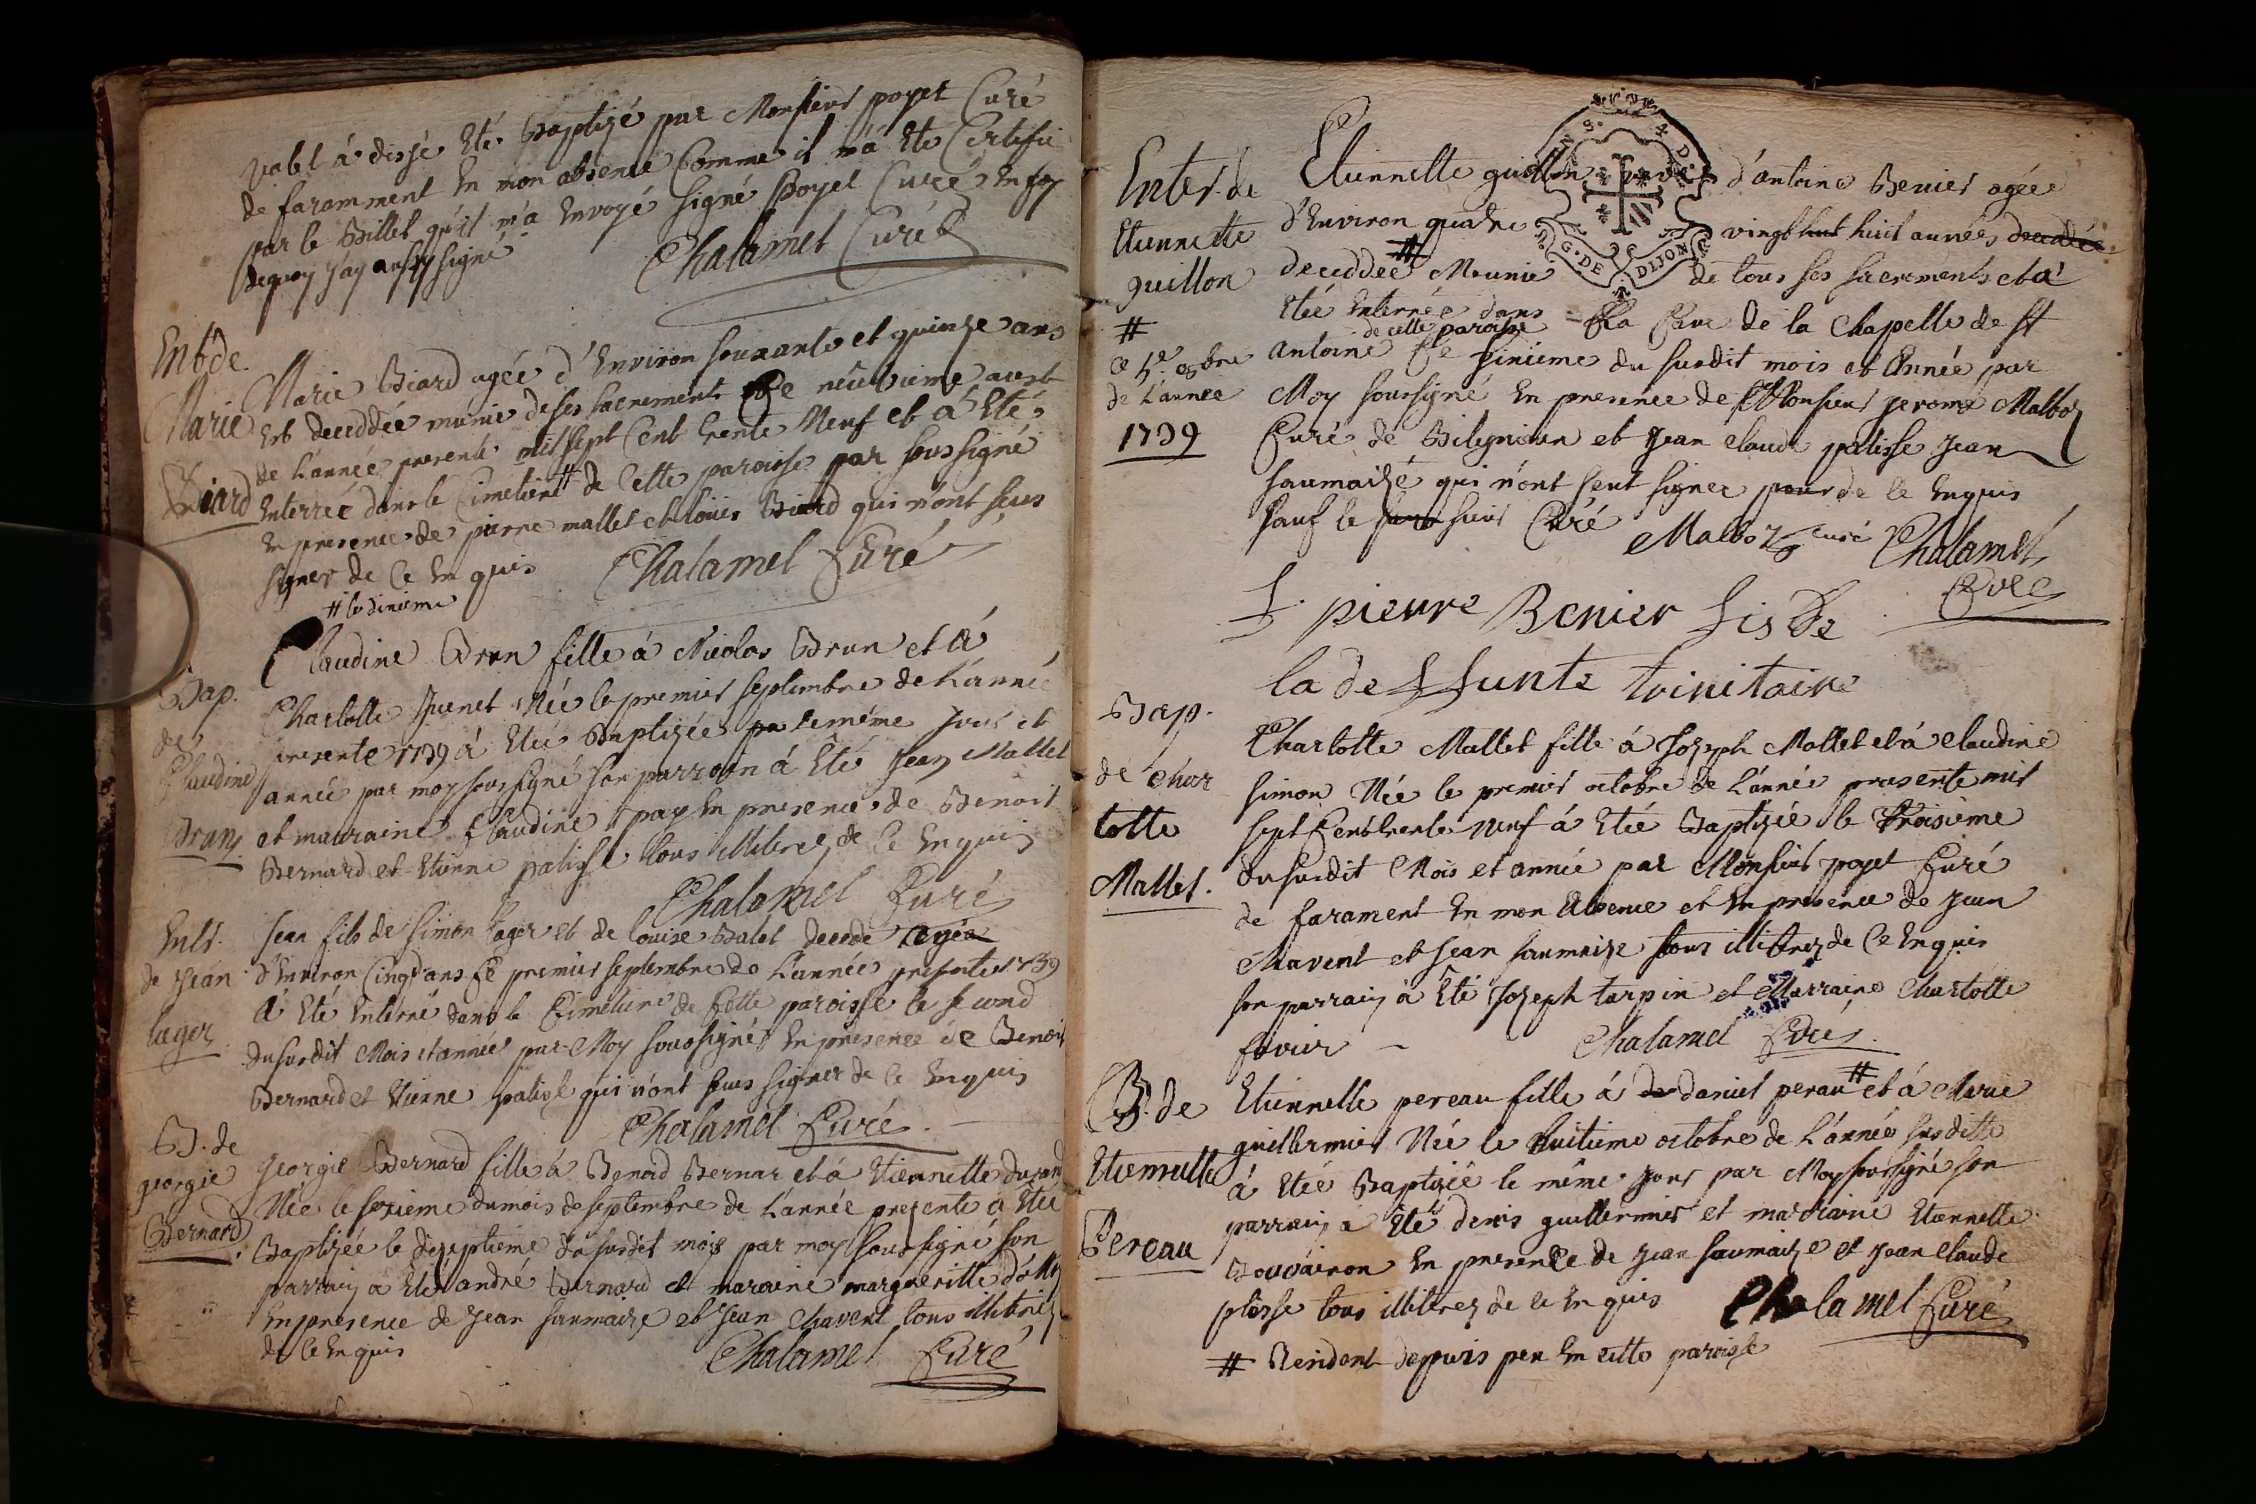 valet à dissé Eté Baptizé par Monsieur poyet Curé
de faramment En mon absence Comme il m'a Ete Certifié
par le Billet qu'il m'a Envoyé signé Poyet Curé En foy
dequoy j'ay aussy signé
Chalamel Curé
Entde
Marie
Biard
Marie Biard agée d'Environ souxante et quinze ans
Est deceddée munie de ses sacrements Le neuvieme aust
de L'année presente mil sept Cent trente Neuf et a Eté
Enterrée dans le Cimetiere # de Cette paroisse par soussigné
En presence de pierre mallet et louis Biard qui n'ont seus
signer de Ce Enquis
Chalamel Curé
# le dixieme
Bap.
de
Claudine
Brun
Claudine Brun fille à Nicolas Brun et à
Charlotte Juenet Née le premier septembre de L'année
presente 1739 à Etée Baptizée le même Jour et
année par moy soussigné son parrain à Eté Jean Mallet
et marraine Claudine pay En presence de Benoit
Bernard et Etienne palisse tous illiterez de Ce Enquis
Chalamel Curé
Entr.
de Jean
lager
Jean fils de simon lager et de louise Balet decede agée
d'Environ Cinq ans Le premier septembre de L'année presente 1739
A Eté Enterré dans le Cimetiere de Cette paroisse le second
du susdit Mois et année par Moy soussigné En presence de Benoit
Bernard et Etienne palisse qui n'ont seus signer de Ce Enquis
Chalamel Curé
B. de
georgie
Bernard
georgie Bernard fille à Benoid Bernar et à Etiennette durand
Née le sezieme du mois de septembre de L'année presente à Etée
Baptizée le dizeptieme du susdit mois par moy soussigné son
parrain à Eté andré Bernard et maraine margueritte
En presence de Jean saumaize et Jean Chavent tous illitrez
de Ce Enquis
Chalamel Curé
Enter. de
Etiennette
guillon
#
Ce 5e. 8bre
de L'année
1739
GEN. DE DIJON
Etiennette guillon d'antoine Benier agée
d'Environ quatre vingt huit huit années decedée
deceddée # Meunie de tous ses sacrements et a
Etée Enterrée dans La Cave de la Chapelle de st
de cette paroisse
antoine Le sixieme du susdit mois et Année par
Moy soussigné En presence de Monsieur Jerome Malboz
Curé de Bilignieux et Jean Claude palisse Jean
saumaizé qui n'ont seut signer pour de Ce Enquis
sauf le sieur Curé
Malboz curé Chalamel
Curé
f. pierre Benier fis De
la deffunte trinitaire
Bap.
de Char
lotte
Mallet.
Charlotte Mallet fille à Joseph Mallet et à Claudine
simon Née le premier octobre de L'année presente mil
sept Cent trente neuf à Etée Baptizée le troisième
du susdit Mois et année par Monsieur poyet Curé
de farament En mon Absence et En presence de Jean
Chavent et Jean saumaize tous illitrez de Ce Enquis
son parrain à Eté Joseph tarpin et Marraine Charlotte
favier
Chalamel Curé.
B. de
Etiennette
Pereau
Etiennette pereau fille à de daniel perau # et à Marie
guillermier Née le huitieme octobre de L'année susditte
à Etée Baptizée le même Jour par Moy soussigné son
parrain à Eté denis guillermier et marraine Etiennette
Bouvairon En presence de Jean saumaize et Jean Claude
plisse tous illiterez de Ce Enquis
Chalamel Curé
# Residont depuis peu En cette paroisse